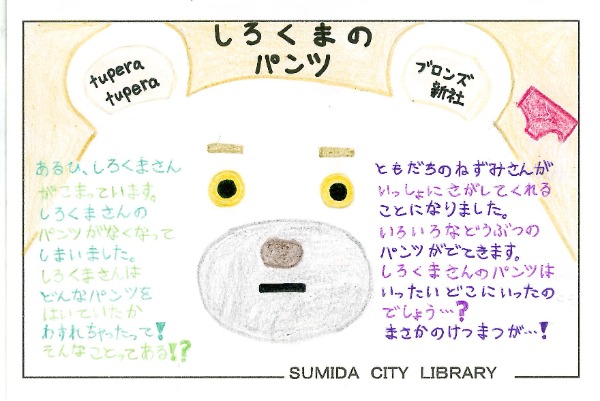 しろくまの
パンツ
tupera
tupera
ブロンズ
新社
あるひ、しろくまさん
がこまっています。
しろくまさんの
パンツがなくなって
しまいました。
しろくまさんは
どんなパンツを
はいていたか
わすれちゃったって!
そんなことってある!?
ともだちのねずみさんが
いっしょにさがしてくれる
ことになりました。
いろいろなどうぶつの
パンツがでてきます。
しろくまさんのパンツは
いったいどこにいったの
でしょう…?
まさかのけつまつが…!
SUMIDA CITY LIBRARY